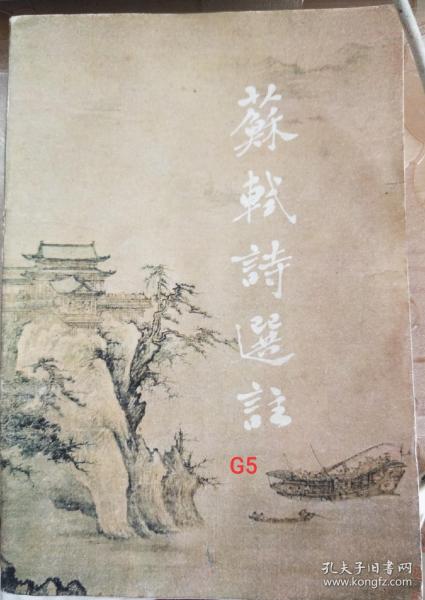 蘇軾詩選註
G5
孔夫子旧书网
kongfz.com